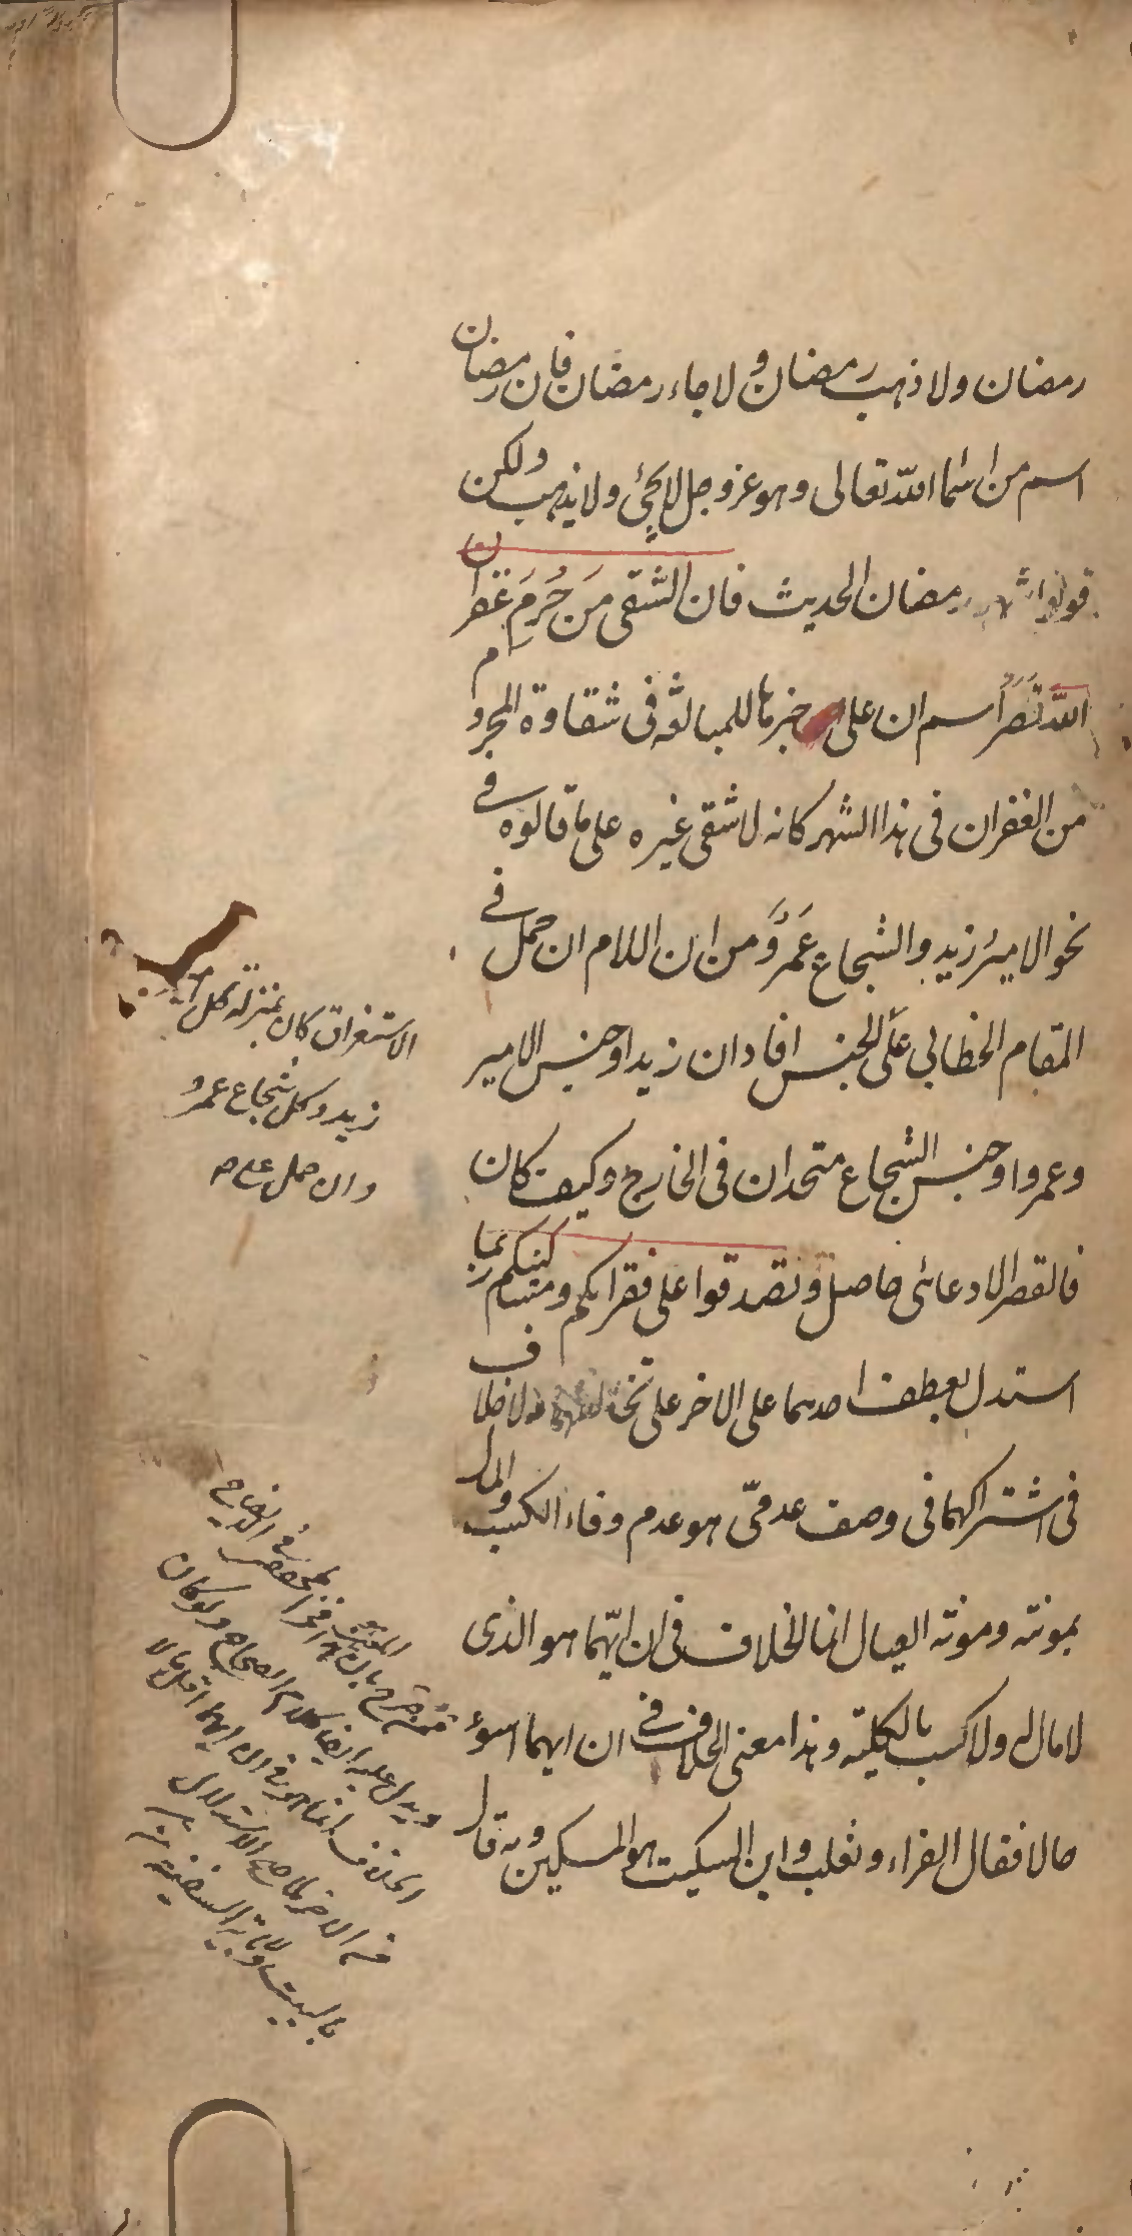 رمضان ولا ذهب رمضان ولا جاء رمضان فان رمضان
اسم من اسما الله تعالى وهو عز وجل لا يجئ ولا يذهب ولكن
قولوا شهر رمضان الحديث فان الشقى مَن حُرِمَ غفران
الله قصر اسم ان على خبرها للمبالغه فى شقاوة المجروم
من الغفران فى هذا الشهر كانه لا شقى غيره على ما قالوه فے
نحو الاميرُ زيد والشجاع عَمروٌ من ان اللام ان حمل فے
المقام الخطابي عَلَى الجنس افاد ان زيدا وجنس الامير
وعمروا وجنس الشجاع متحدان فى الخارج وكيف كان
فالقصر الادعائى حاصل وتصدقوا على فقرائكم ومساكينكم ربما
استدل بعطف احدهما على الاخر على لا خلاف
فى اشتراكهما فى وصف عدمىّ هو عدم وفاء الكسب والمال
بمونته ومونة العيال انما الخلاف فى ان ايّهما هو الذى
لا مال له ولا كسب بالكلية وهذا معنى الخلاف فے ان ايهما اسوء
حالا فقال الفراء وثعلب وابن السكيت هو المسكين وبه قال
الاستغراق كان بمنزلة كل امير
زيد وكل شجاع عمروٌ
وان حمل على
فى الايضاح
ويدل عليه ايضا كلام الصحاح ولو كان
الخلاف انما هو فى ان ايهما اقل مالا
من الاخر لما صح الاستدلال
بالبيت وباية السفينة